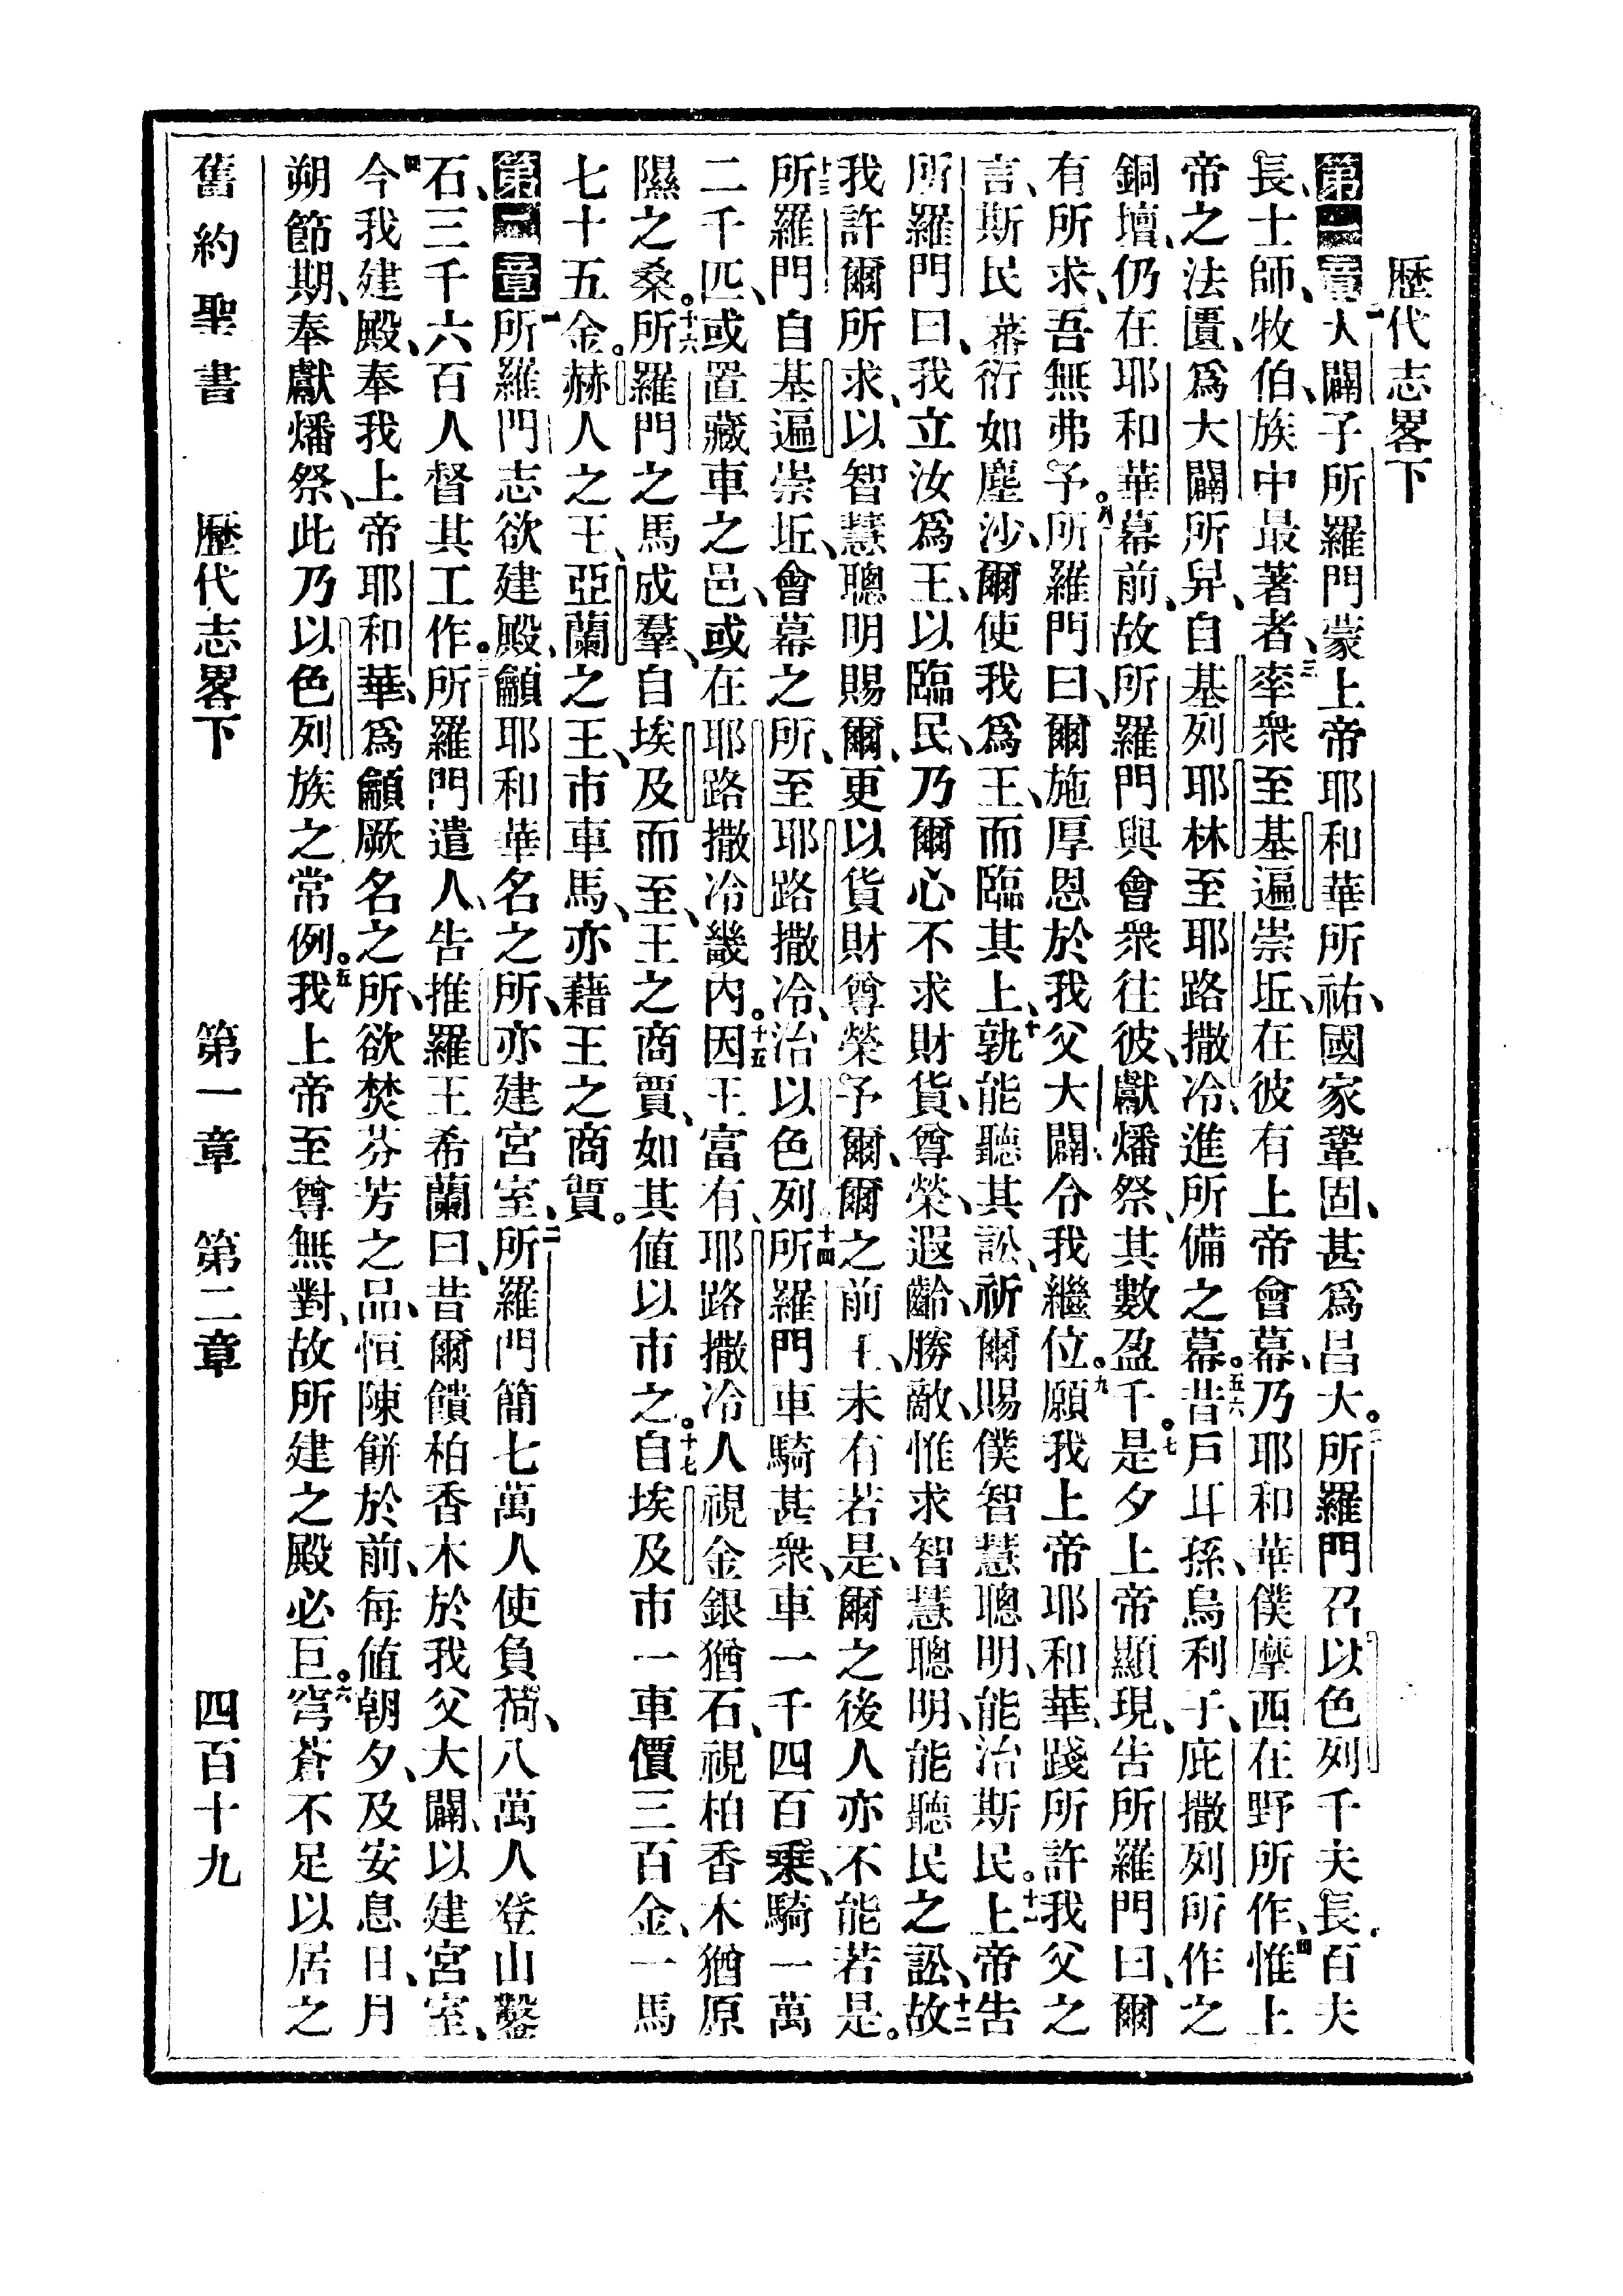 歷代志畧下
第一章一大闢子所羅門蒙上帝耶和華所祐、國家鞏固、甚爲昌大。二所羅門召以色列千夫長百夫
長、士師、牧伯、族中最著者、三率衆至基遍崇坵、在彼有上帝會幕、乃耶和華僕摩西在野所作、四惟上
帝之法匱、爲大闢所舁、自基列耶林至耶路撒冷、進所備之幕。五六昔戶耳孫、烏利子、庇撒列所作之
銅壇、仍在耶和華幕前、故所羅門與會衆往彼、獻燔祭、其數盈千。七是夕上帝顯現、告所羅門曰、爾
有所求、吾無弗予。八所羅門曰、爾施厚恩於我父大闢、令我繼位。九願我上帝耶和華、踐所許我父之
言、斯民蕃衍如塵沙、爾使我爲王、而臨其上、十孰能聽其訟、祈爾賜僕智慧聰明、能治斯民。十一上帝告
所羅門曰、我立汝爲王、以臨民、乃爾心不求財貨、尊榮、遐齡、勝敵、惟求智慧聰明、能聽民之訟、十二故
我許爾所求、以智慧聰明賜爾、更以貨財尊榮予爾、爾之前王、未有若是、爾之後人亦不能若是。
十三所羅門自基遍崇坵、會幕之所、至耶路撒冷、治以色列。十四所羅門車騎甚衆、車一千四百乘、騎一萬
二千匹、或置藏車之邑、或在耶路撒冷畿內。十五因王富有、耶路撒冷人視金銀猶石、視柏香木猶原
隰之桑。十六所羅門之馬成羣、自埃及而至、王之商賈、如其値以市之。十七自埃及市一車價三百金、一馬
七十五金。赫人之王、亞蘭之王、市車馬、亦藉王之商賀。
第二章一所羅門志欲建殿、籲耶和華名之所、亦建宮室、二所羅門簡七萬人使負荷、八萬人登山鑿
石、三千六百人督其工作。三所羅門遣人、告推羅王希蘭曰、昔爾饋柏香木於我父大闢、以建宮室、
四今我建殿、奉我上帝耶和華、爲籲厥名之所、欲焚芬芳之品、恒陳餅於前、每値朝夕、及安息日、月
朔節期、奉獻燔祭、此乃以色列族之常例。五我上帝至尊無對、故所建之殿必巨。六穹蒼不足以居之
舊約聖書 歷代志畧下 第一章 第二章 四百十九